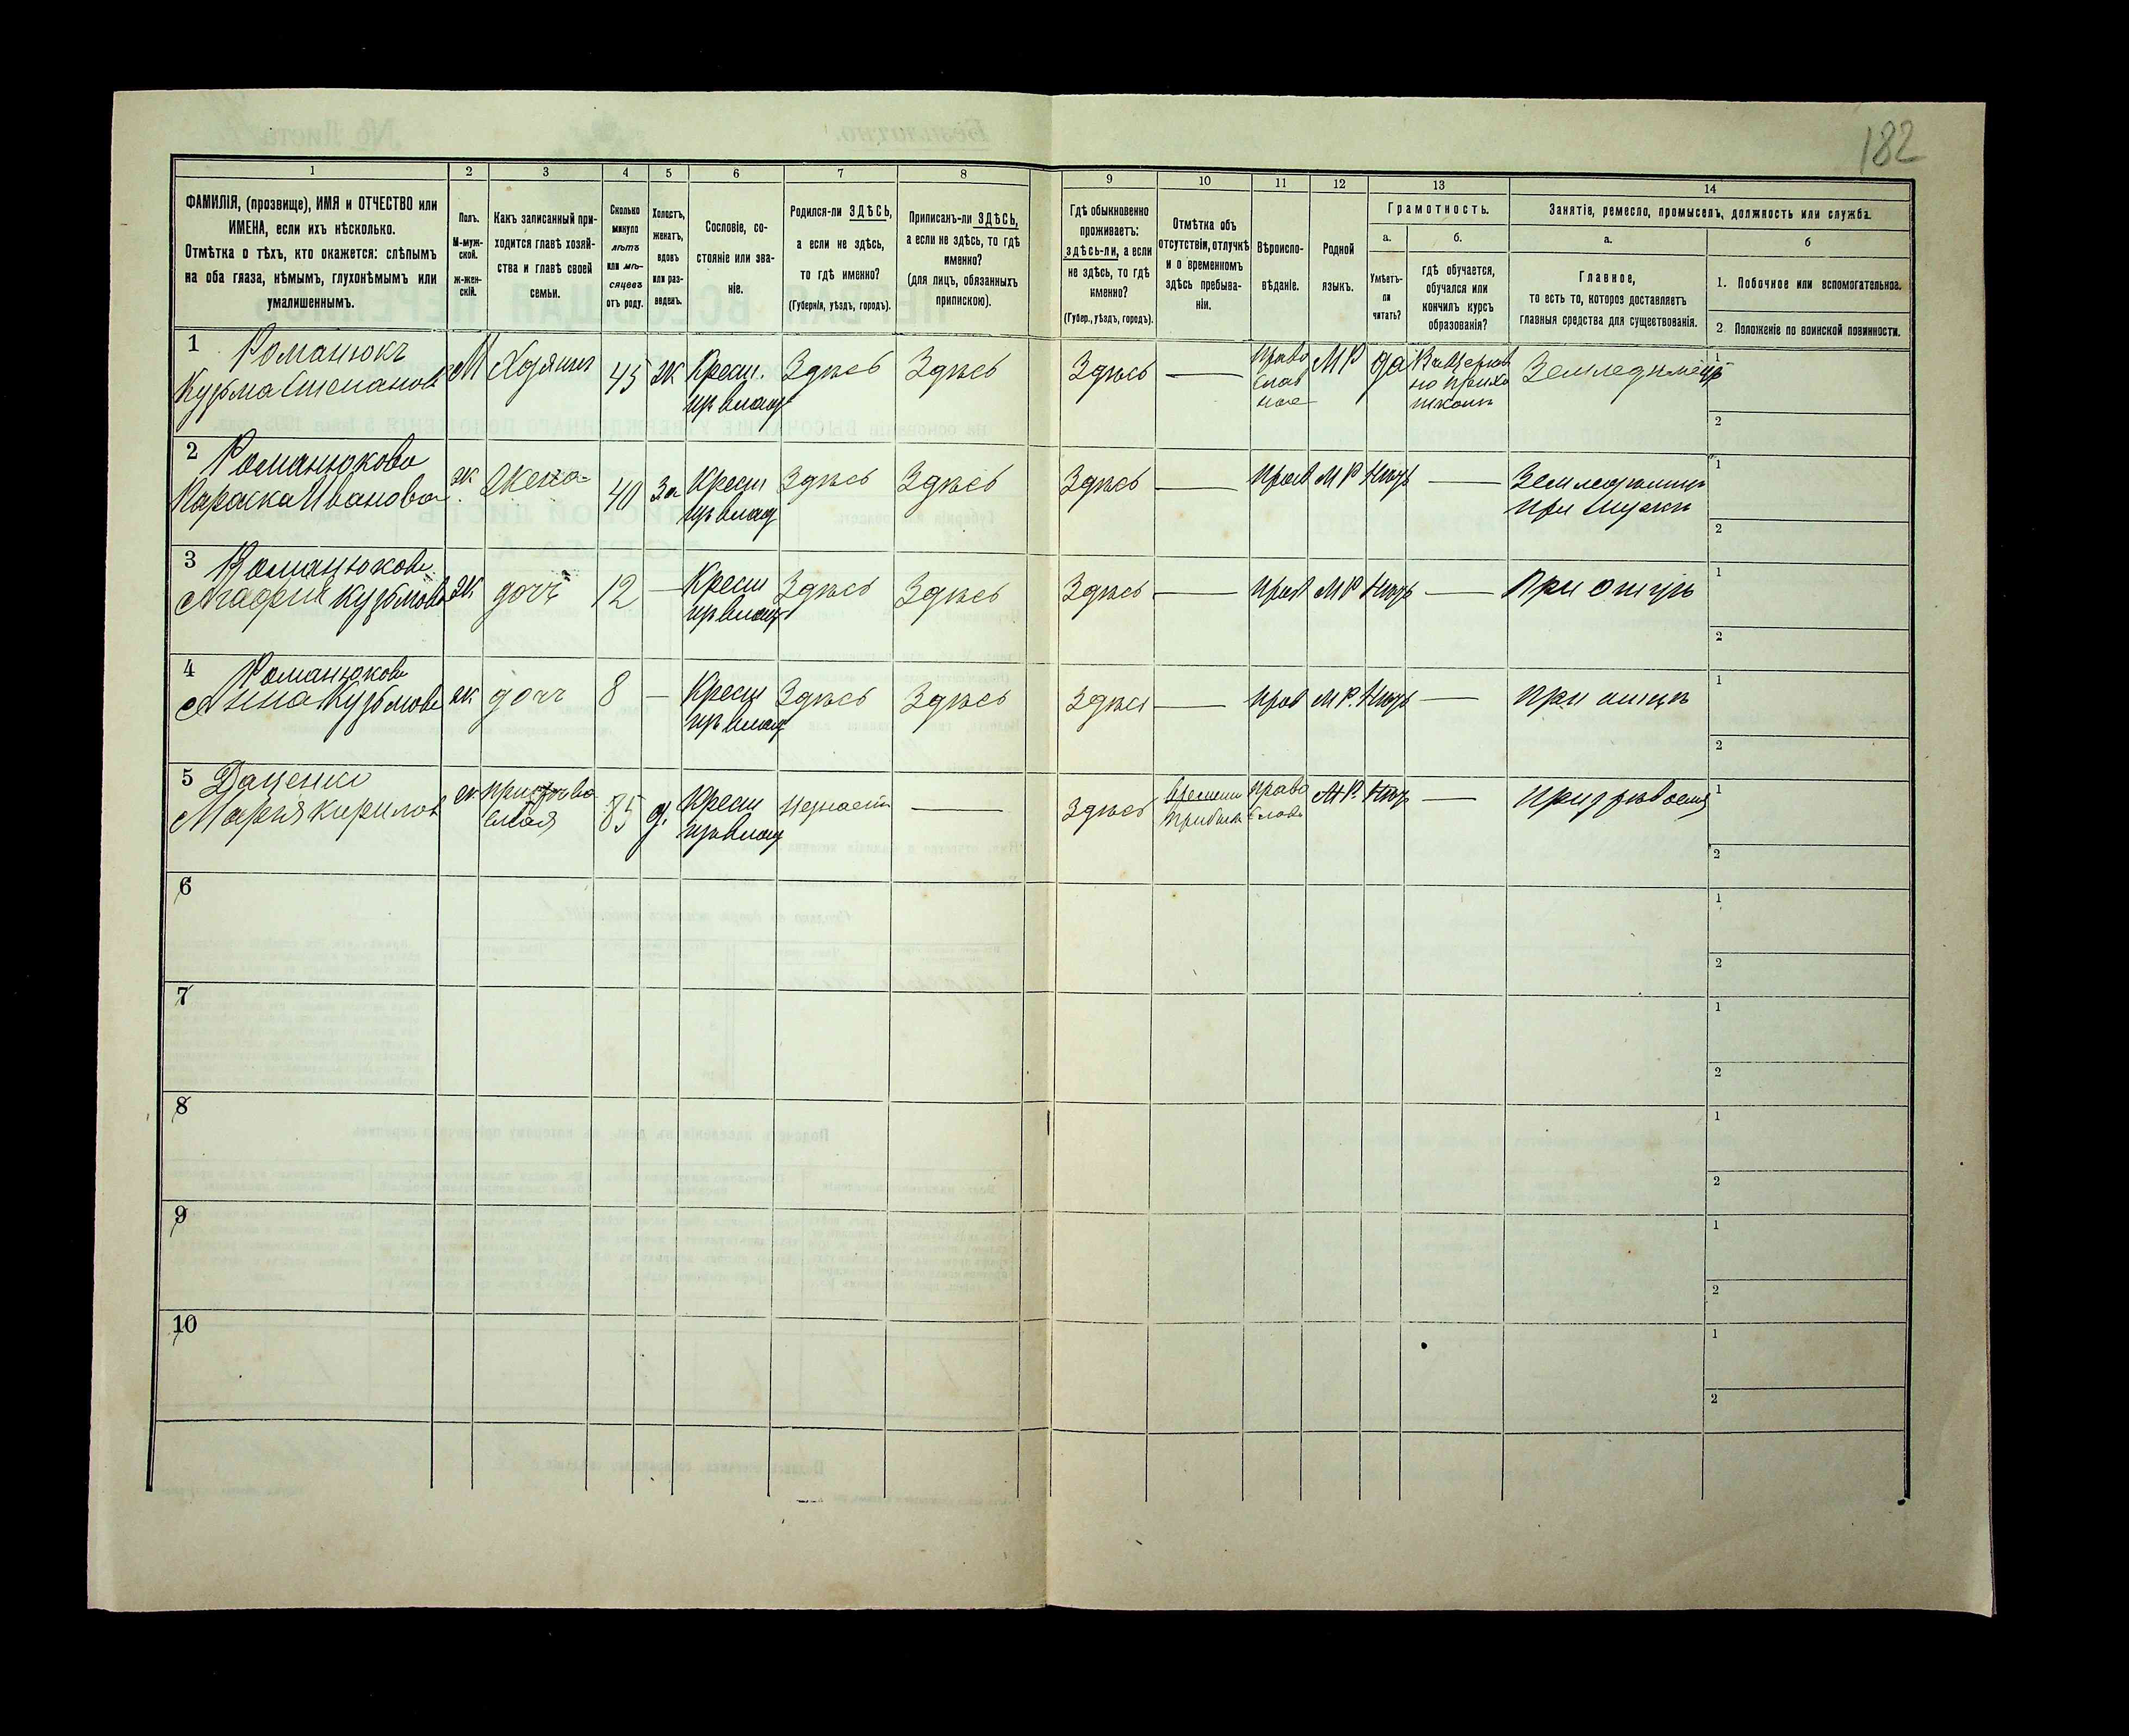 182
1
2
3
4
5
6
7
8
ФАМИЛІЯ, (прозвище), ИМЯ и ОТЧЕСТВО или
ИМЕНА, если ихъ нѣсколько.
Отмѣтка о тѣхъ, кто окажется: слѣпымъ
на оба глаза, нѣмымъ, глухонѣмымъ или
умалишеннымъ.
Полъ.
М-муж-
ской.
ж-жен-
скій.
Какъ записанный при-
ходится главѣ хозяй-
ства и главѣ своей
семьи.
Сколько
минуло
лѣтъ
или мѣ-
сяцевъ
отъ роду.
Холостъ,
женатъ,
вдовъ
или раз-
веденъ.
Сословіе, со-
стояніе или зва-
ніе.
Родился-ли ЗДѢСЬ,
а если не здѣсь,
то гдѣ именно?
(Губернія, уѣздъ, городъ).
Приписанъ-ли ЗДѢСЬ,
а если не здѣсь, то гдѣ
именно?
(для лицъ, обязанныхъ
припискою).
9
10
11
12
13
14
Гдѣ обыкновенно
проживаетъ:
здѣсь-ли, а если
не здѣсь, то гдѣ
именно?
(Губер., уѣздъ, городъ).
Отмѣтка объ
отсутствіи, отлучкѣ
и о временномъ
здѣсь пребыва-
ніи.
Вѣроиспо-
вѣданіе.
Родной
языкъ.
Грамотность.
а.
Умѣетъ-
ли
читать?
б.
гдѣ обучается,
обучался или
кончилъ курсъ
образованія?
Занятіе, ремесло, промыселъ, должность или служба.
а.
Главное,
то есть то, которое доставляетъ
главныя средства для существованія.
б
1. Побочное или вспомогательное.
2. Положеніе по воинской повинности.
1 Романюкъ
Кузьма Степанов М Хозяинъ 45 ж Крест. Здѣсь Здѣсь Здѣсь — Право МР да Землядѣлецъ 1
изъ влад слав
ное
2
2 Романюкова
Параска Иванова ж. Жена 40 За Крест Здѣсь Здѣсь Здѣсь — Прав МР Нѣтъ — 1
изъ влад при
2
3 Романюкова
Агафия Кузьмова ж. дочь 12 — Крест Здѣсь Здѣсь Здѣсь — Прав МР Нѣтъ — При отцѣ 1
изъ влад
2
4 Романюкова
Анна Кузьмова ж дочь 8 — Крест Здѣсь Здѣсь Здѣсь — Прав МР. Нѣтъ — При отцѣ 1
изъ влад
2
5 Даценко
Мария Кирилов ж 85 д. Крест — Здѣсь Право МР. Нѣтъ — 1
изъ влад слав
2
6 1
2
7 1
2
8 1
2
9 1
2
10 1
2